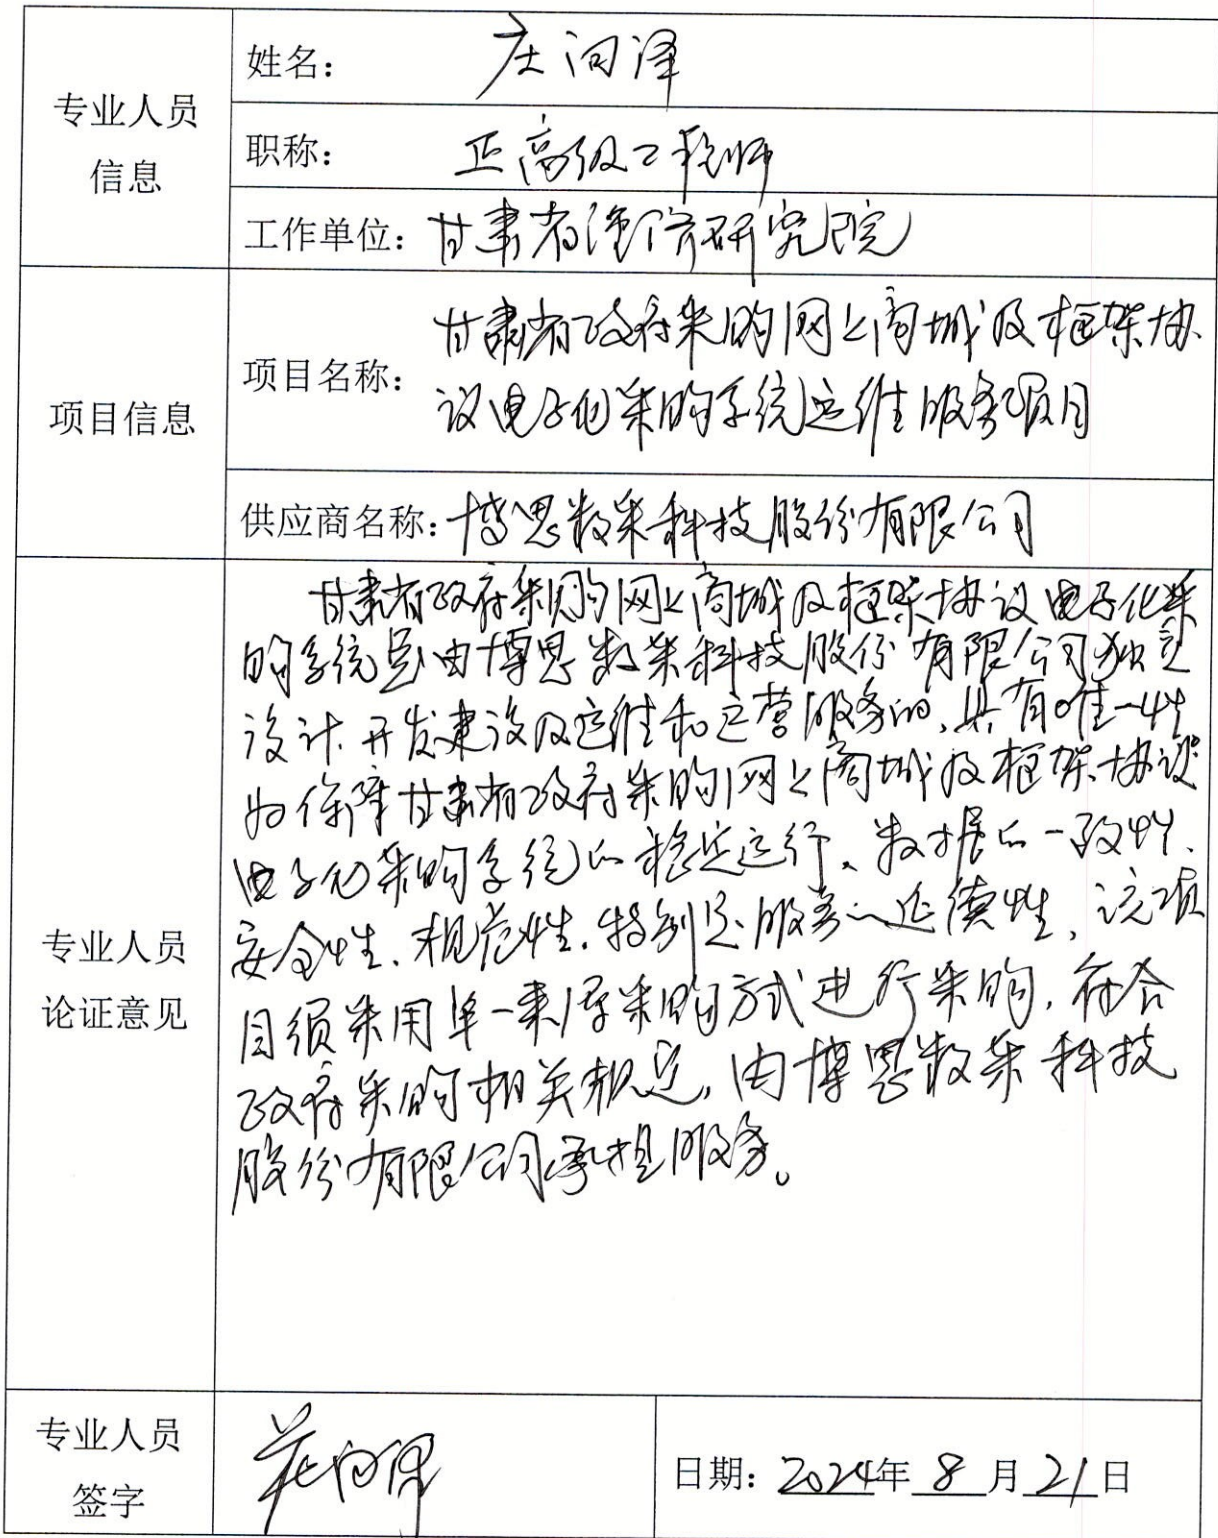 姓名：庄润泽
专业人员
信息
职称：正高级工程师
工作单位：甘肃省经济研究院
甘肃省政府采购网上商城及框架协
项目名称：
议电子化采购系统运维服务项目
项目信息
供应商名称：博思数采科技股份有限公司
甘肃省政府采购网上商城及框架协议电子化采
购系统是由博思数采科技股份有限公司独立
设计、开发建设及运维和运营服务的，具有唯一性
为保障甘肃省政府采购网上商城及框架协议
电子化采购系统的稳定运行、数据的一致性、
安全性、规范性，特别是服务的延续性，该项
目须采用单一来源采购方式进行采购，符合
政府采购相关规定，由博思数采科技
股份有限公司承担服务。
专业人员
论证意见
专业人员
签字
日期：2024年8月21日